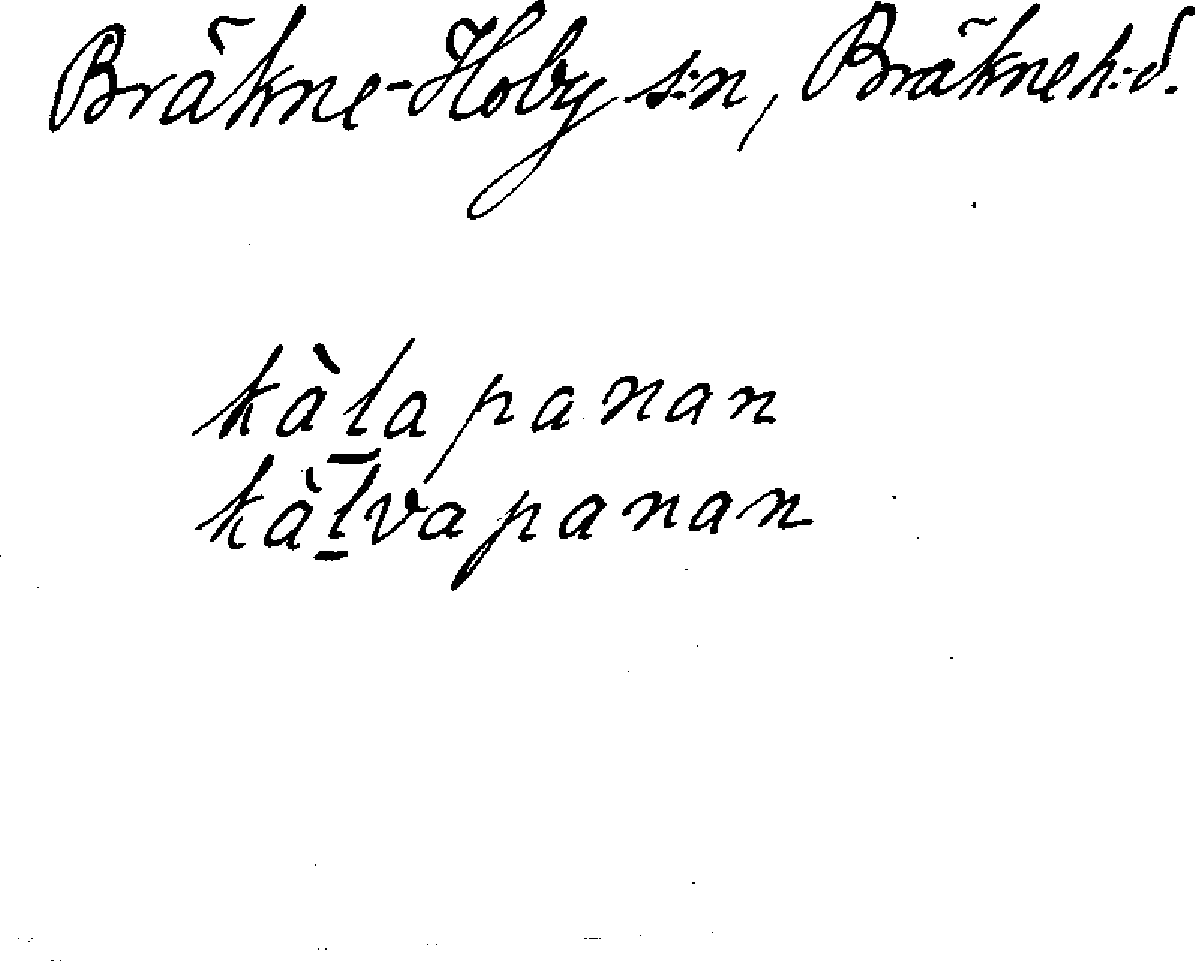 Bräkne-Hoby s:n, Bräkne h:d.
kàl̲apanan
kàl̲vapanan